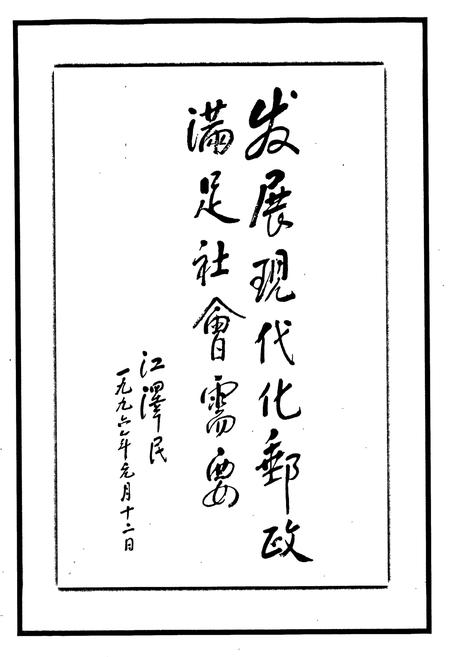 发展現代化郵政
滿足社會需要
江澤民
一九九六年元月十二日